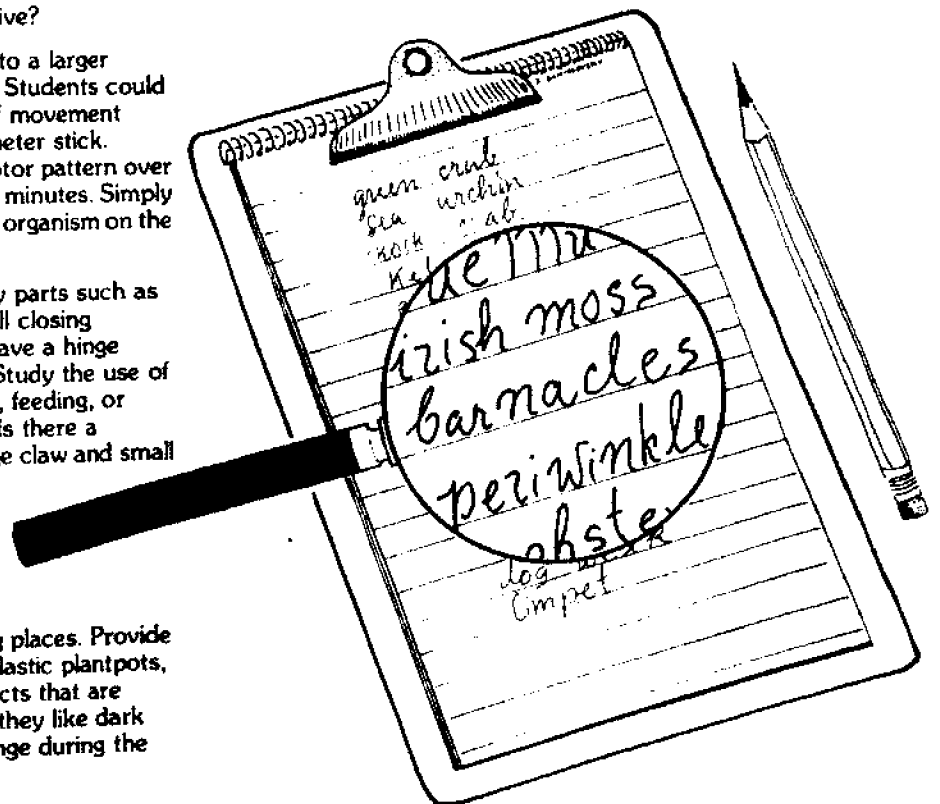 ive?
to a larger
Students could
movement
meter stick.
tor pattern over
minutes. Simply
organism on the
parts such as
ll closing
ave a hinge
Study the use of
, feeding, or
s there a
e claw and small
places. Provide
lastic plantpots,
cts that are
they like dark
nge during the
green crab
sea urchin
irish moss
barnacles
periwinkle
limpet